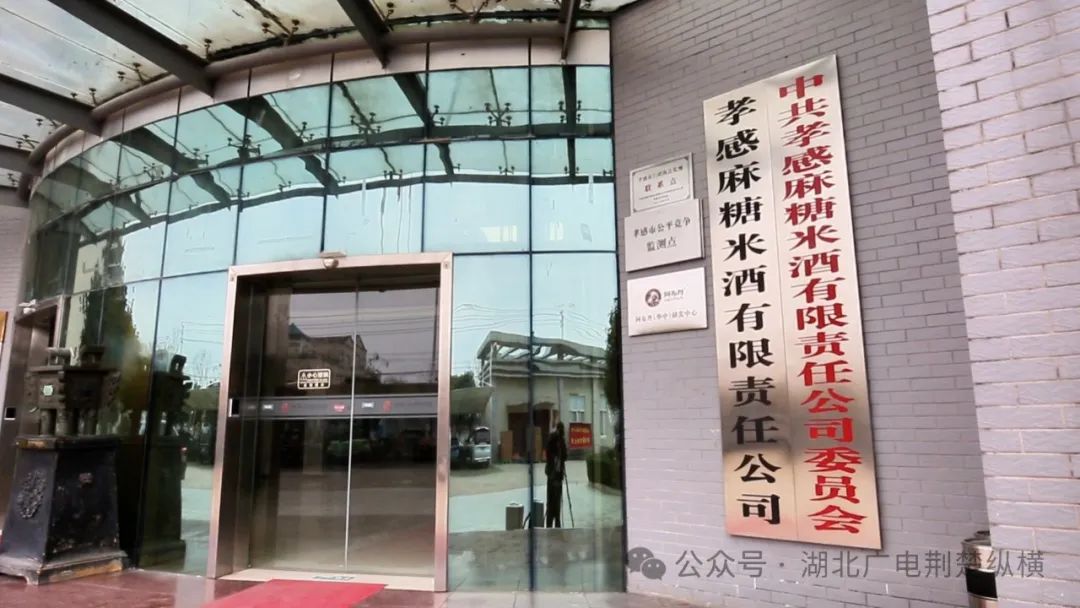 中共孝感麻糖米酒有限责任公司委员会
孝感麻糖米酒有限责任公司
联系点
孝感市公平竞争
监测点
小心玻璃
公众号 · 湖北广电荆楚纵横